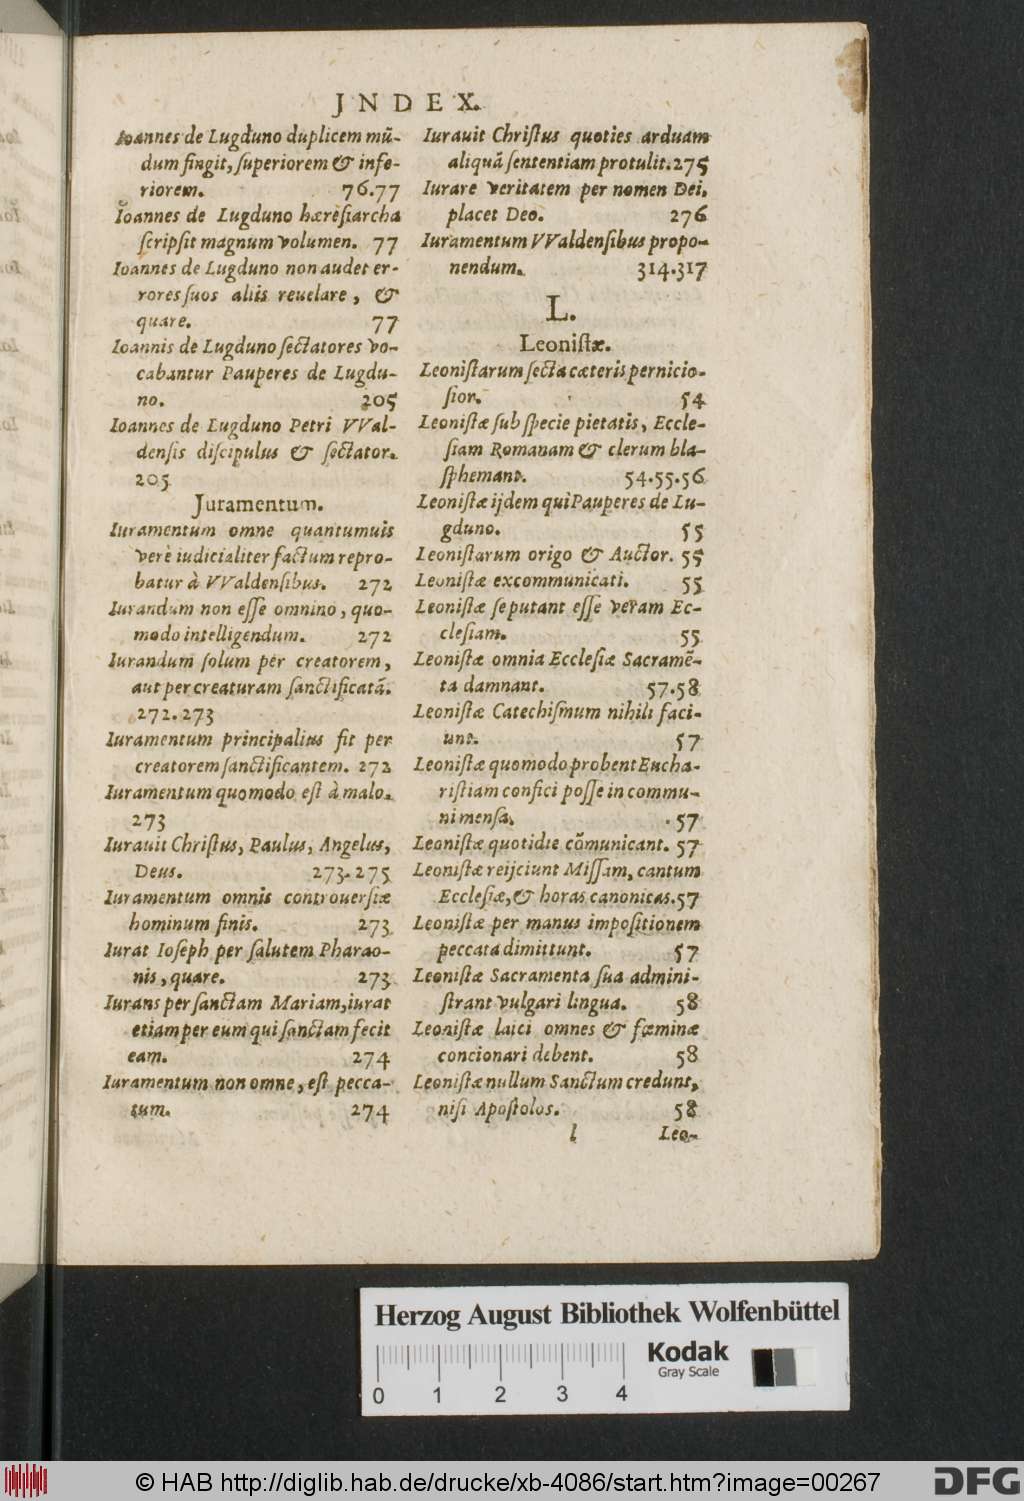 JNDEX.
Ioannes de Lugduno duplicem mū-
dum fingit, ſuperiorem & infe-
riorem. 76.77
Ioannes de Lugduno hærèſiarcha
ſcripſit magnum volumen. 77
Ioannes de Lugduno non audet er-
rores ſuos aliis reuelare, &
quare. 77
Ioannis de Lugduno ſectatores vo-
cabantur Pauperes de Lugdu-
no. 205
Ioannes de Lugduno Petri VVal-
denſis diſcipulus & ſectator.
205
Juramentum.
Iuramentum omne quantumuis
verè iudicialiter factum repro-
batur à VValdenſibus. 272
Iurandum non eſſe omnino, quo-
modo intelligendum. 272
Iurandum ſolum per creatorem,
aut per creaturam ſanctificatā.
272.273
Iuramentum principalius fit per
creatorem ſanctificantem. 272
Iuramentum quomodo eſt à malo.
273
Iurauit Chriſtus, Paulus, Angelus,
Deus. 273.275
Iuramentum omnis controuerſiæ
hominum finis. 273
Iurat Ioſeph per ſalutem Pharao-
nis, quare. 273
Iurans per ſanctam Mariam, iurat
etiam per eum qui ſanctam fecit
eam. 274
Iuramentum non omne, eſt pecca-
tum. 274
Iurauit Chriſtus quoties arduam
aliquā ſententiam protulit. 275
Iurare veritatem per nomen Dei,
placet Deo. 276
Iuramentum VValdenſibus propo-
nendum. 314.317
L.
Leoniſtæ.
Leoniſtarum ſecta cæteris pernicio-
ſior. 54
Leoniſtæ ſub ſpecie pietatis, Eccle-
ſiam Romanam & clerum bla-
ſphemant. 54.55.56
Leoniſtæ ijdem qui Pauperes de Lu-
gduno. 55
Leoniſtarum origo & Auctor. 55
Leoniſtæ excommunicati. 55
Leoniſtæ ſe putant eſſe veram Ec-
cleſiam. 55
Leoniſtæ omnia Eccleſiæ Sacramē-
ta damnant. 57.58
Leoniſtæ Catechiſmum nihili faci-
unt. 57
Leoniſtæ quomodo probent Eucha-
riſtiam confici poſſe in commu-
ni menſa. 57
Leoniſtæ quotidie cōmunicant. 57
Leoniſtæ reijciunt Miſſam, cantum
Eccleſiæ, & horas canonicas. 57
Leoniſtæ per manus impoſitionem
peccata dimittunt. 57
Leoniſtæ Sacramenta ſua admini-
ſtrant vulgari lingua. 58
Leoniſtæ laici omnes & fœminæ
concionari debent. 58
Leoniſtæ nullum Sanctum credunt,
niſi Apoſtolos. 58
l Leo-
Herzog August Bibliothek Wolfenbüttel
Kodak
Gray Scale
0 1 2 3 4
© HAB http://diglib.hab.de/drucke/xb-4086/start.htm?image=00267
DFG